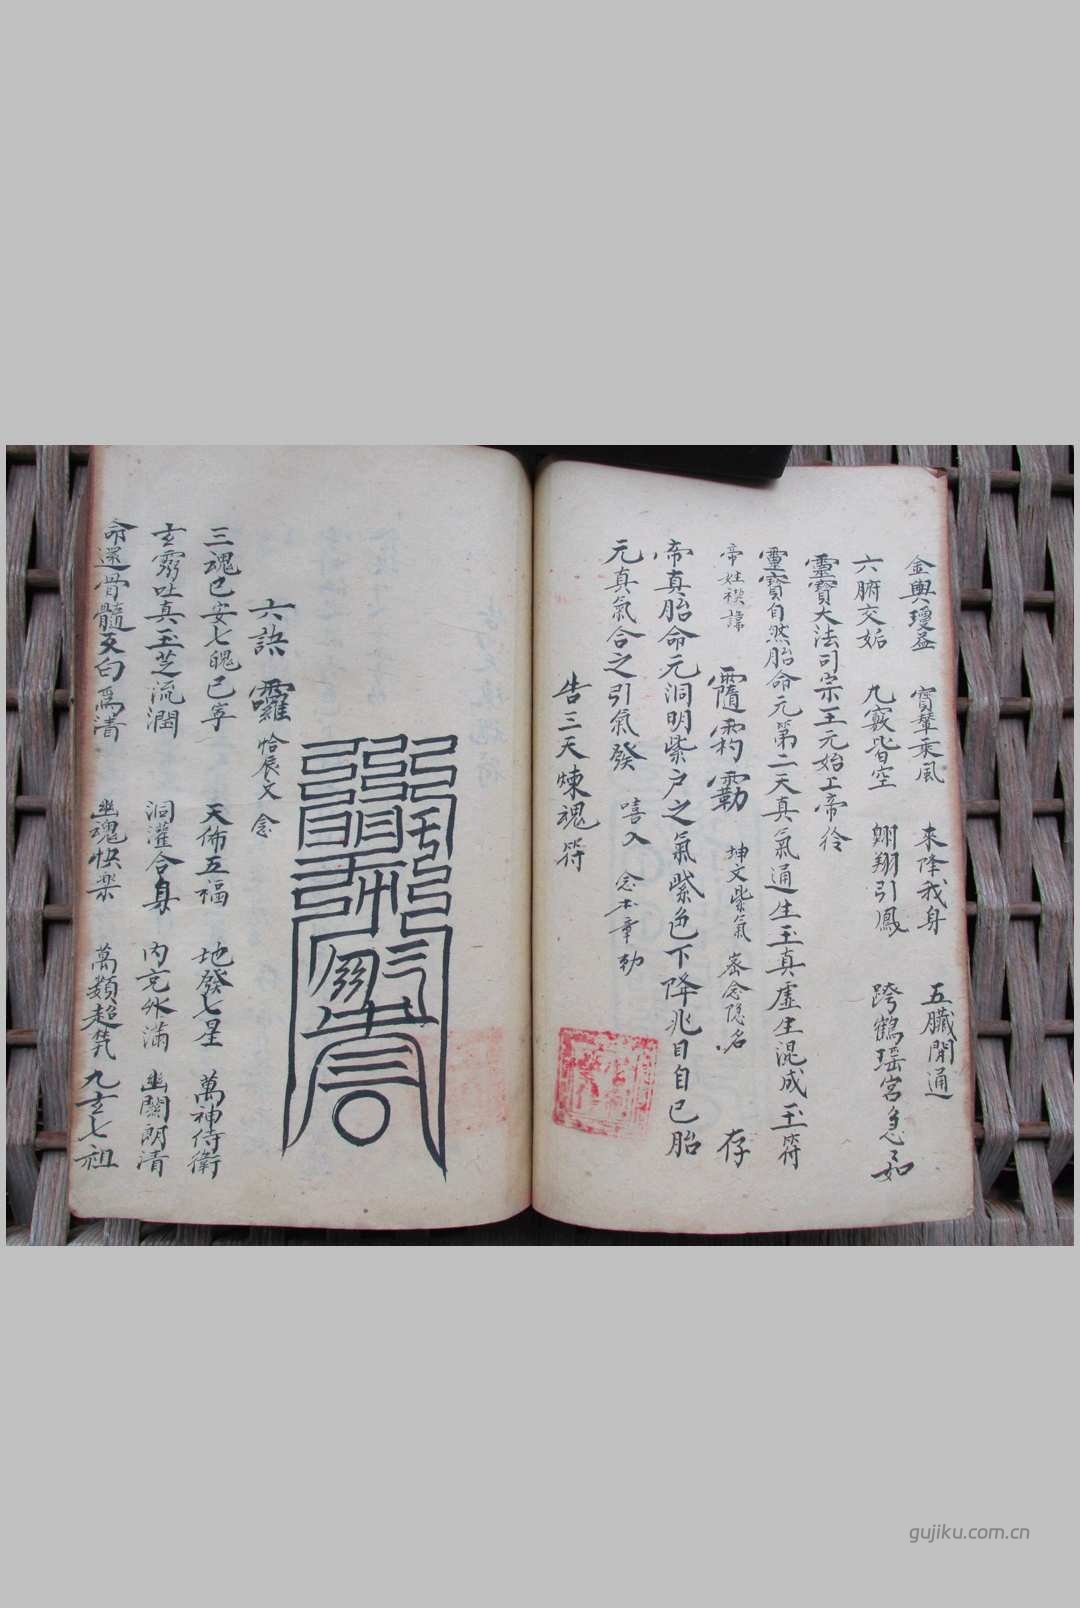 金輿瓊蓋 寳輦乘風 來降我身 五臟開通
六腑交姤 九竅皆空 翊翔引鳳 跨鶴瑶宮急々如
靈寳大法司宗王元始上帝徐
靈寳自然胎命元第二天真氣通生玉真虛生混成玉符
帝姓 諱 坤文紫氣 密念隐名 存
帝真胎命元洞明紫户之氣紫色下降兆目自已胎
元真氣合之引氣發 嘻入 念本章勅
告三天煉魂符
六訣 囉 恰辰文 念
三魂已安七魄已寜 天佈五福 地發七星 萬神侍衛
玄雰吐真玉芝流潤 洞灌合身 内充外滿 幽關朗清
命還骨髓 白爲清 幽魂快楽 萬類超 九玄七祖
gujiku.com.cn